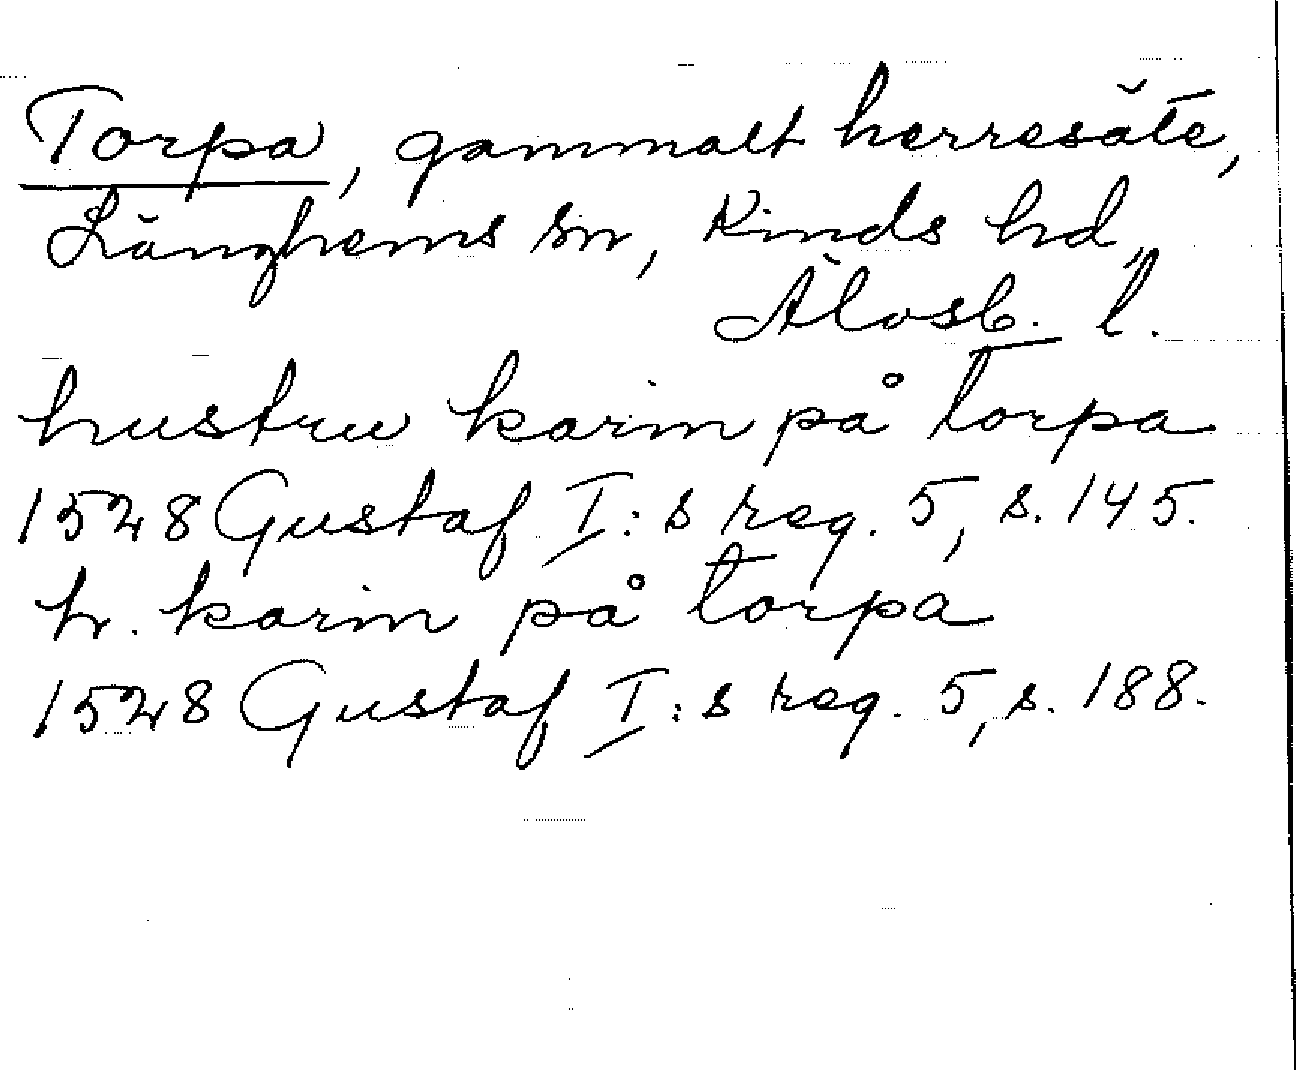 Torpa, gammalt herresäte,
Länghems sn, Kinds hd,
Älvsb. l.
hustru karin på torpa
1528 Gustaf I:s reg. 5, s. 145.
h. karin på torpa
1528 Gustaf I:s reg. 5, s. 188.